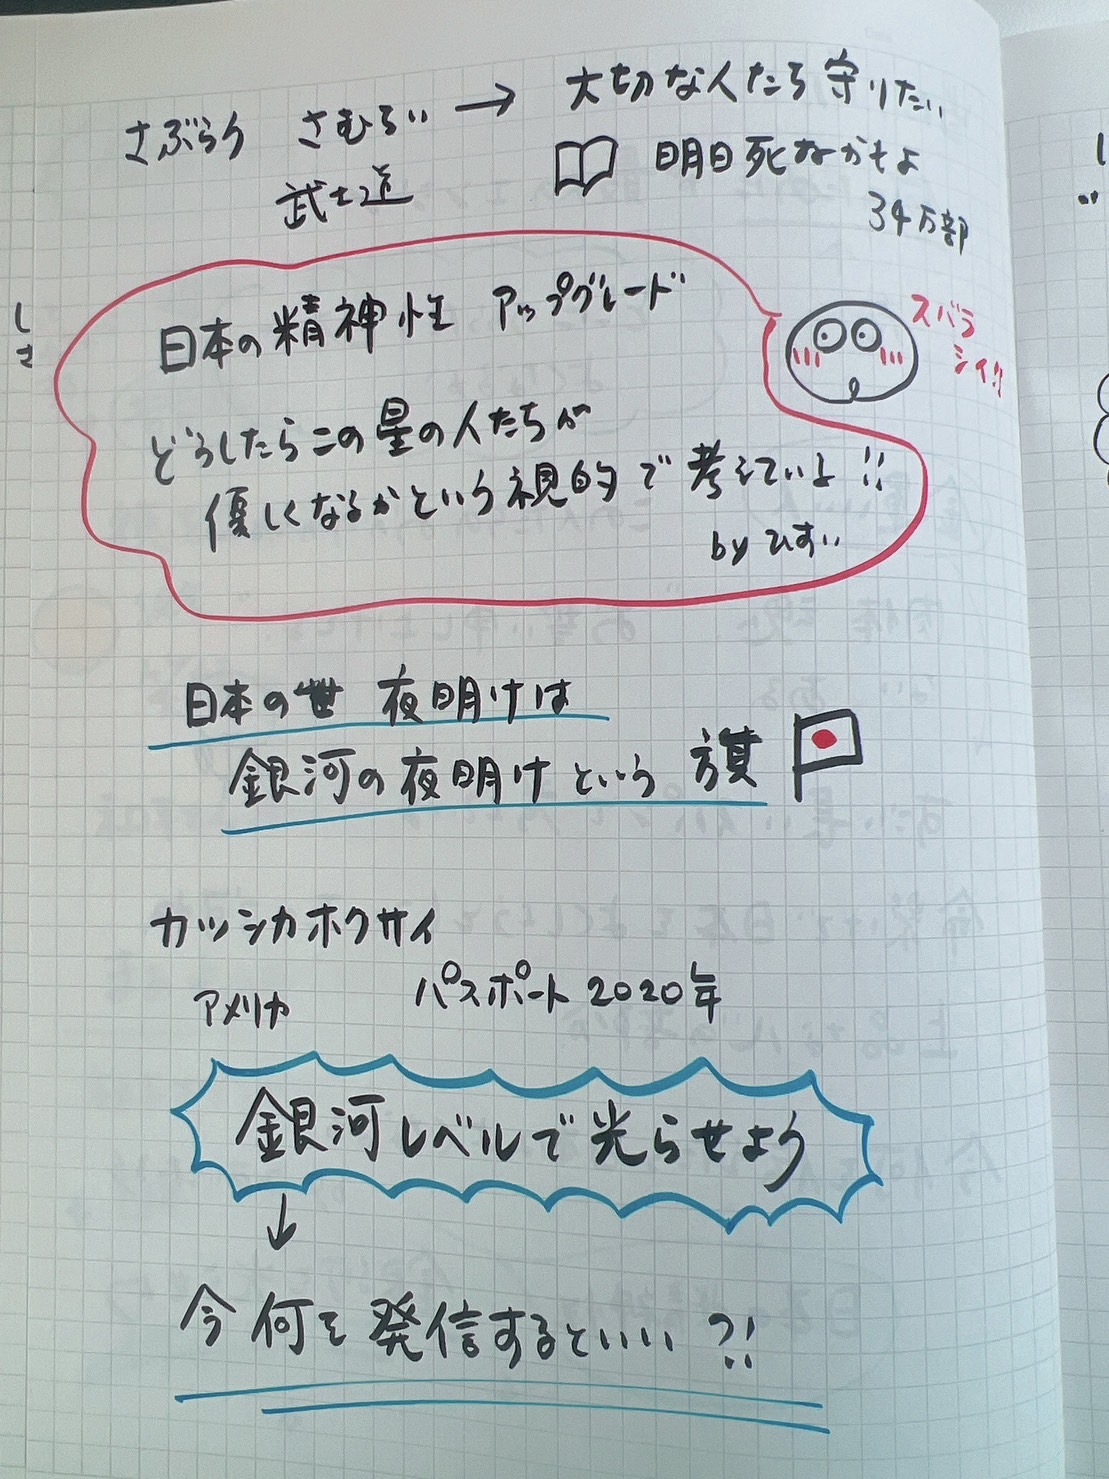 さぶらう さむらい → 大切な人たち守りたい
武士道
明日死ぬかもよ
34万部
日本の精神性 アップグレード
スバラ
シイ!!
どうしたらこの星の人たちが
優しくなるかという視的で考えていよ!!
by ひすい
日本の世 夜明けは
銀河の夜明けという 旗
カツシカホクサイ
アメリカ
パスポート 2020年
銀河レベルで光らせよう
↓
今何を発信するといい?!